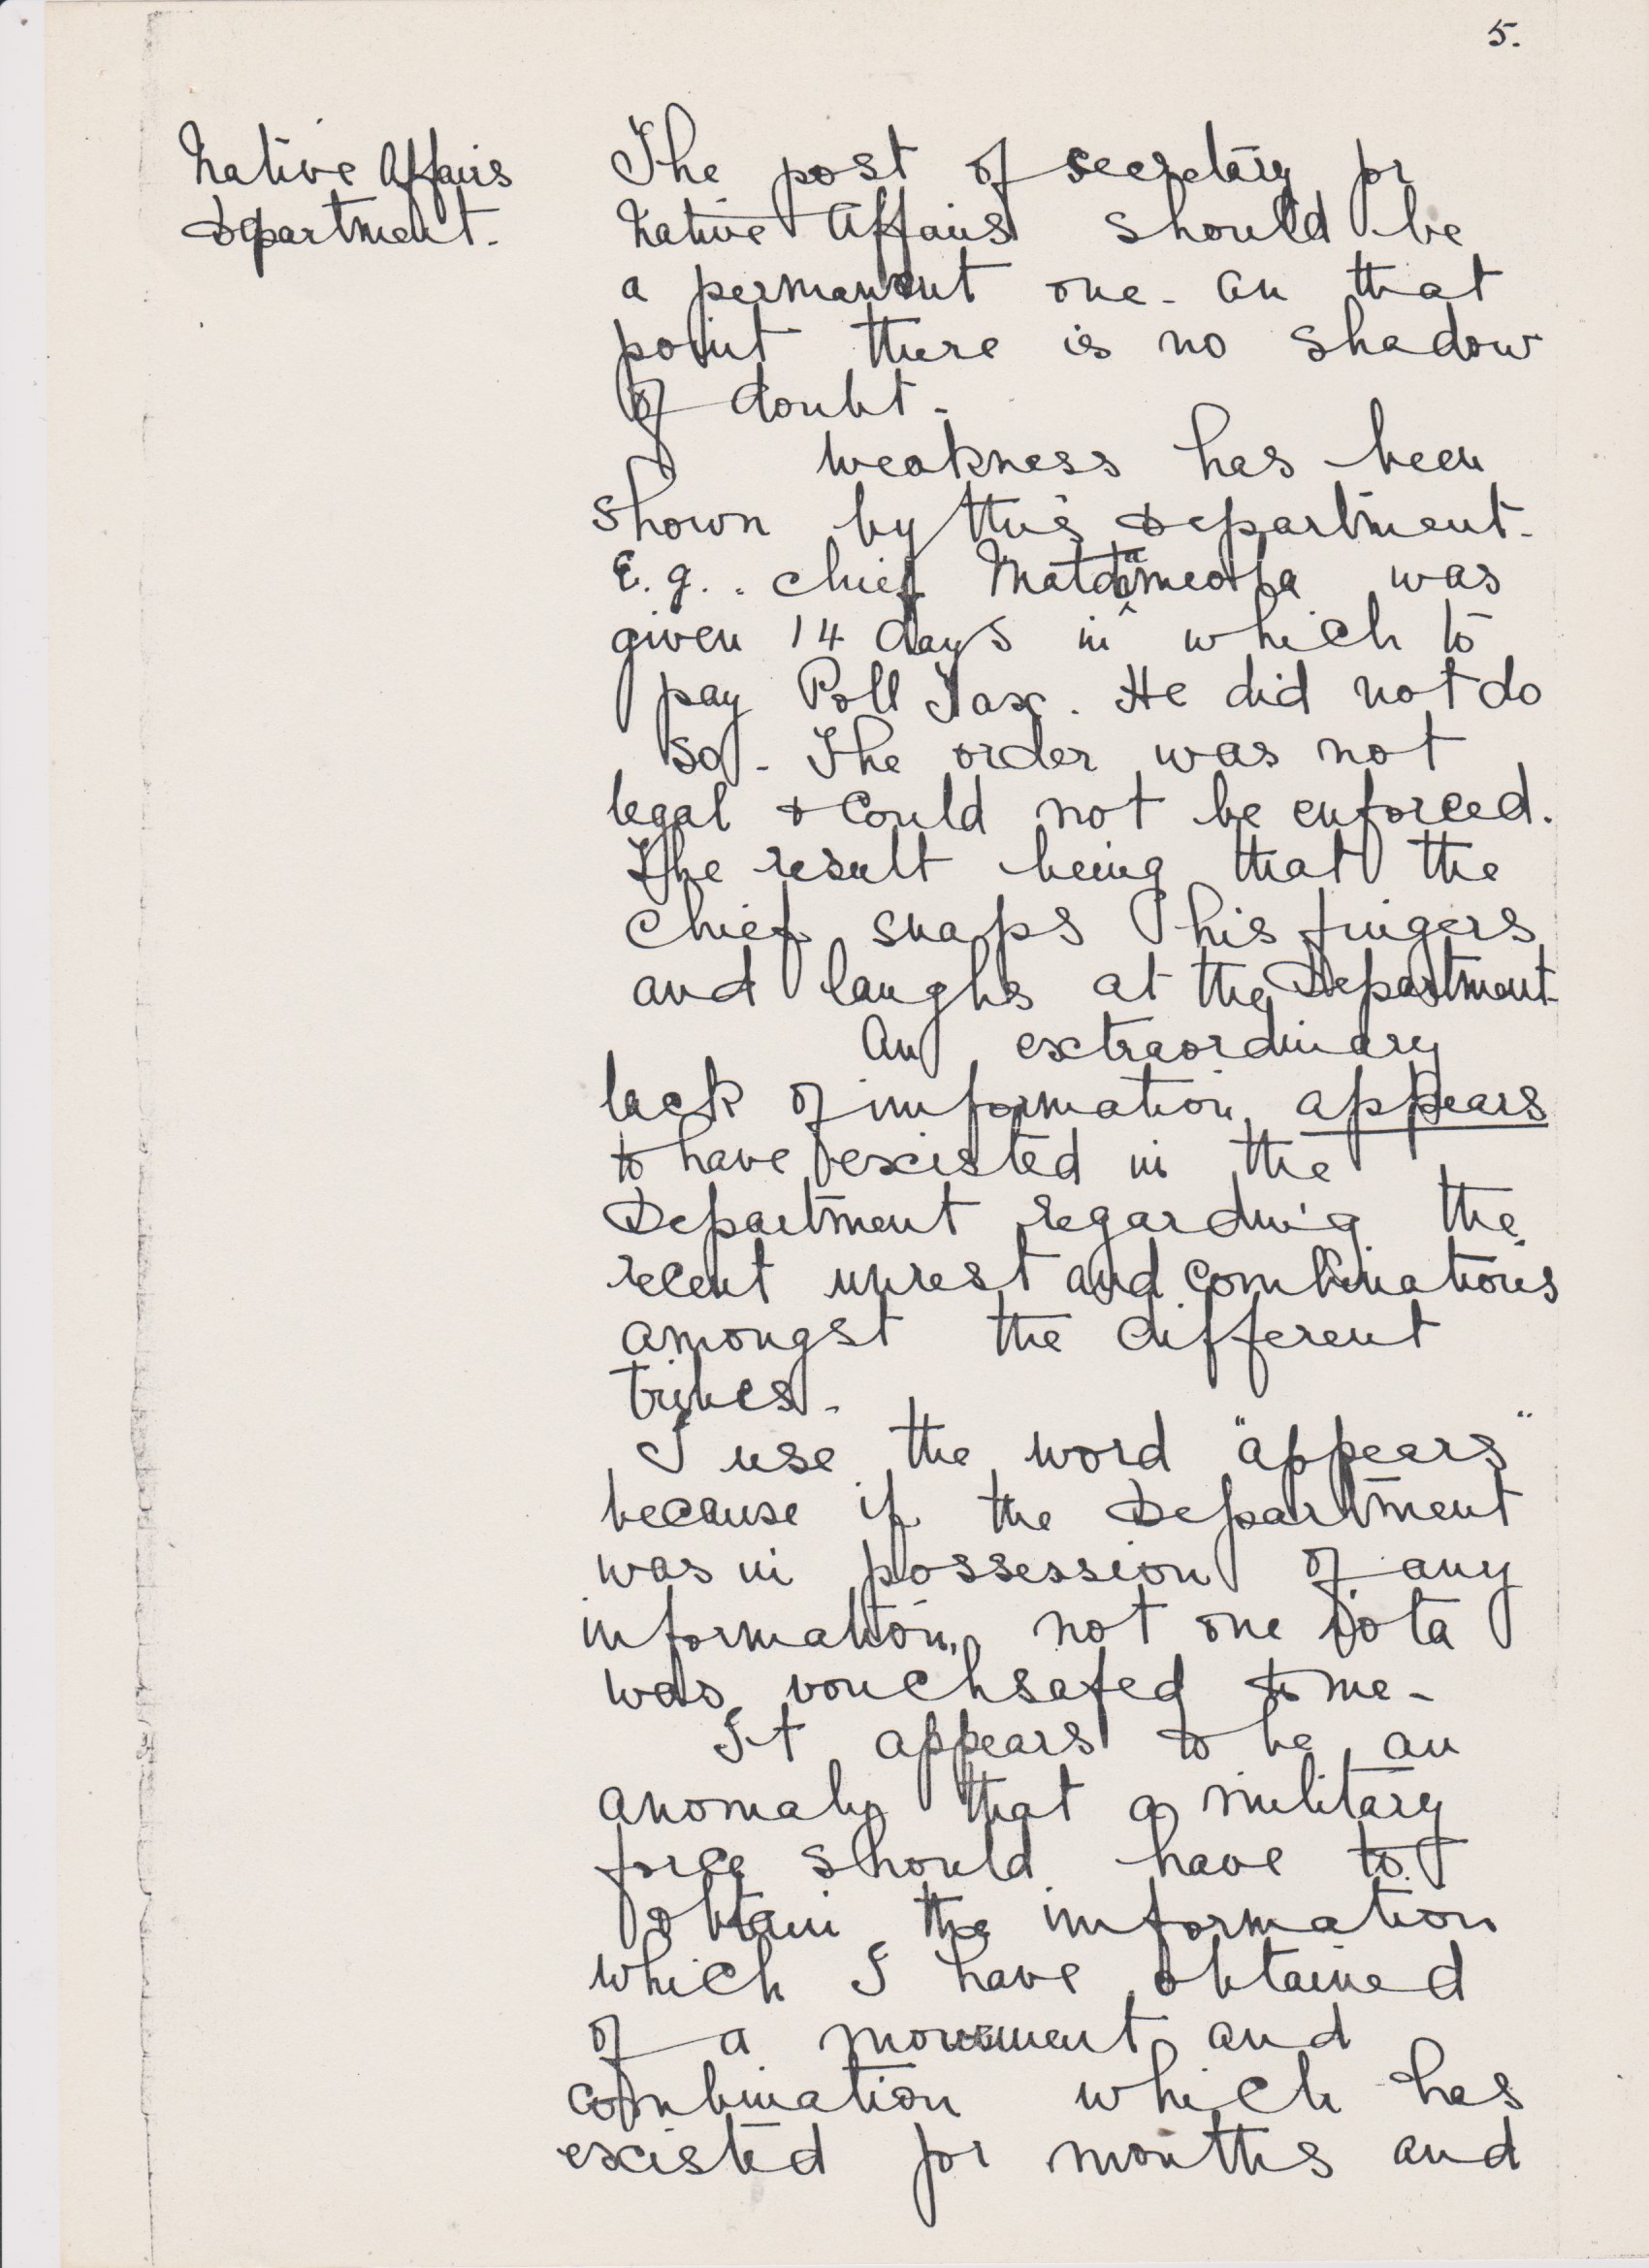 5.
Native Affairs
Department.
The post of secretary for
Native Affairs should be
a permanent one. On that
point there is no shadow
of doubt.
Weakness has been
shown by this Department.
E.g.. Chief was
given 14 days in which to
pay Poll Tax. He did not do
so. The order was not
legal & could not be enforced.
The result being that the
Chief snaps his fingers
and laughs at the Department
An extraordinary
lack of information appears
to have existed in the
Department regarding the
recent unrest and combinations
amongst the different
tribes.
I use the word "appears"
because if the Department
was in possession of any
information, not one iota
was vouchsafed to me.
It appears to be an
anomaly that a military
force should have to
obtain the information
which I have obtained
of a movement and
combination which has
existed for months and